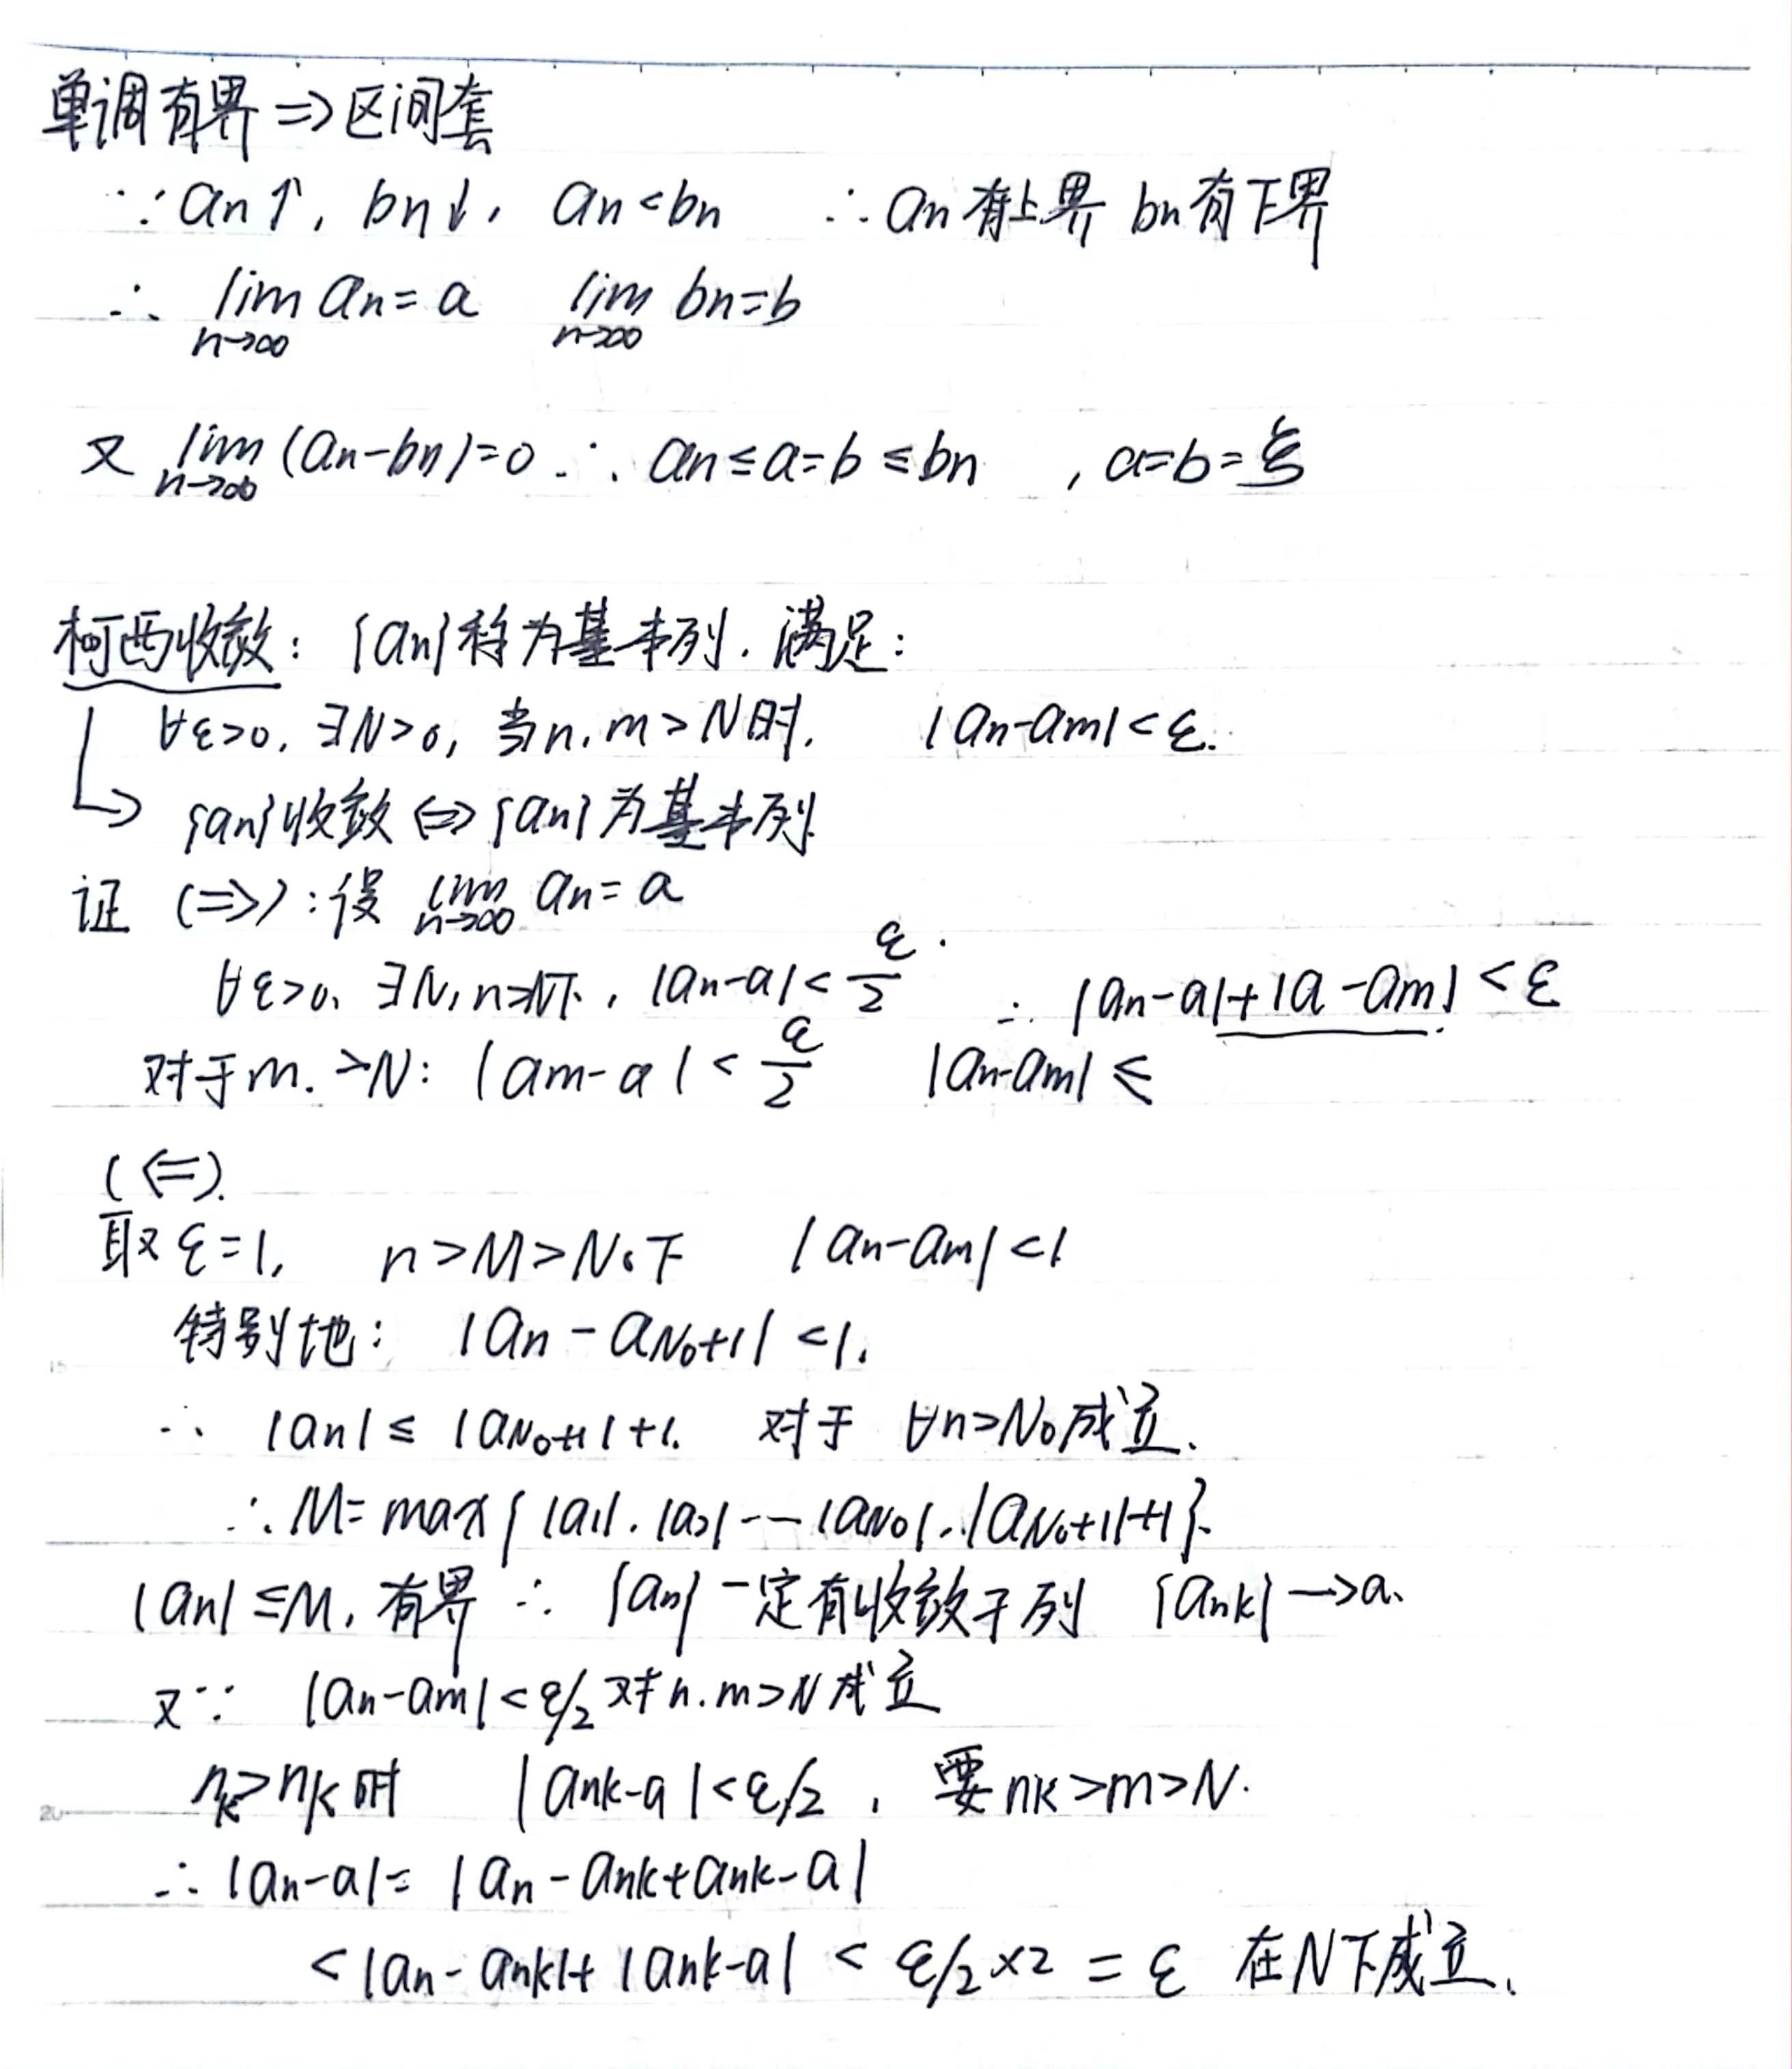 单调有界 ⇒ 区间套
∵ an↑, bn↓, an<bn ∴ an有上界 bn有下界
∴ lim n→∞ an=a lim n→∞ bn=b
又 lim n→∞ (an-bn)=0 ∴ an≤a=b≤bn , a=b=ξ
柯西收敛: {an}称为基本列. 满足:
∀ε>0, ∃N>0, 当n,m>N时, |an-am|<ε.
↳ {an}收敛 ⇔ {an}为基本列
证 (⇒): 设 lim n→∞ an=a
∀ε>0, ∃N, n>N下, |an-a|<ε/2 ∴ |an-a|+|a-am|<ε
对于m.>N: |am-a|<ε/2 |an-am|≤
(⇐).
取ε=1, n>M>N0下 |an-am|<1
特别地: |an-aN0+1|<1.
∴ |an|≤|aN0+1|+1. 对于 ∀n>N0成立.
∴ M=max{|a1|.|a2|---|aN0|,.|aN0+1|+1}.
|an|≤M, 有界 ∴ {an}一定有收敛子列 {ank}→a.
又∵ |an-am|<ε/2 对于n.m>N成立
nk>nK时 |ank-a|<ε/2, 要nk>m>N.
∴ |an-a|=|an-ank+ank-a|
<|an-ank|+|ank-a|<ε/2×2=ε 在N下成立.